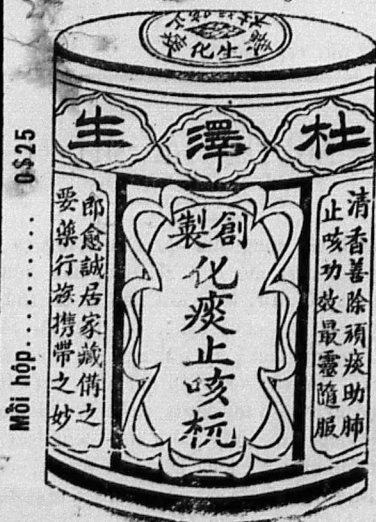 杜澤生
清香善除頑痰助肺
止咳功效最靈隨服
創製
化痰止咳杬
即愈誠居家藏備之
要藥行旅携帶之妙
Mỗi hộp........... 0$25